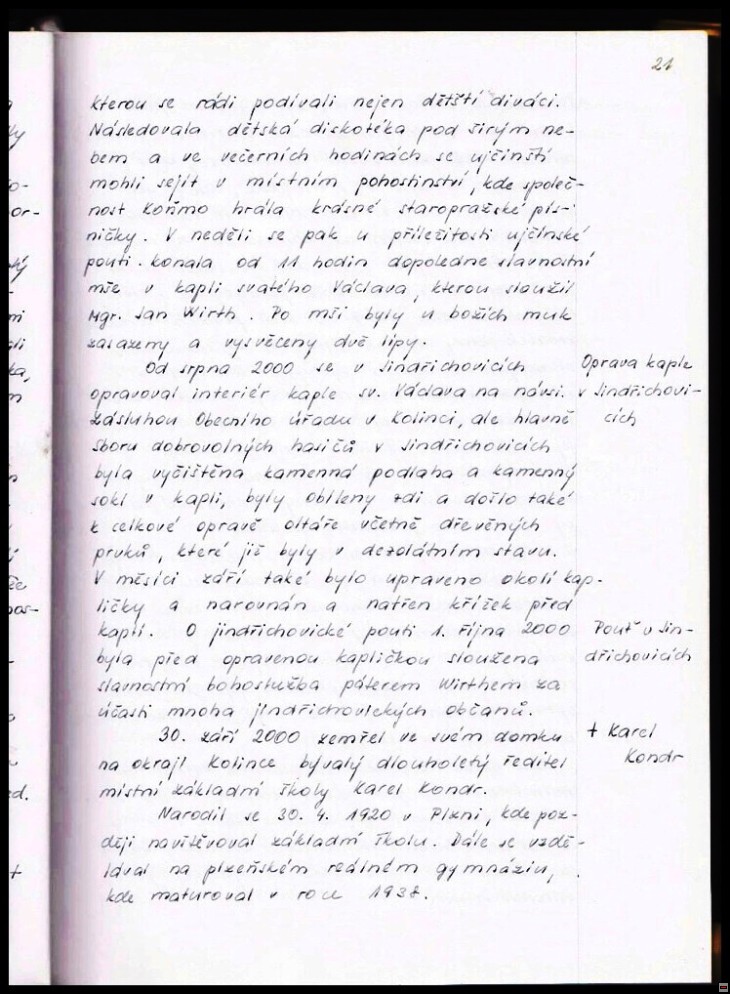 21
kterou se rádi podívali nejen dětští diváci.
Následovala dětská diskotéka pod širým ne-
bem a ve večerních hodinách se ujčínští
mohli sejít v místním pohostinství, kde společ-
nost Koňmo hrála krásné staropražské pís-
ničky. V neděli se pak u příležitosti ujčínské
pouti konala od 11 hodin dopoledne slavnostní
mše v kapli svatého Václava, kterou sloužil
Mgr. Jan Wirth. Po mši byly u božích muk
zasazeny a vysvěceny dvě lípy.
Od srpna 2000 se v Jindřichovicích
opravoval interiér kaple sv. Václava na návsi.
Zásluhou Obecního úřadu v Kolinci, ale hlavně
sboru dobrovolných hasičů v Jindřichovicích
byla vyčištěna kamenná podlaha a kamenný
sokl v kapli, byly obíleny zdi a došlo také
k celkové opravě oltáře včetně dřevěných
prvků, které již byly v dezolátním stavu.
V měsíci září také bylo upraveno okolí kap-
ličky a narovnán a natřen křížek před
kaplí. O jindřichovické pouti 1. října 2000
byla před opravenou kapličkou sloužena
slavnostní bohoslužba páterem Wirthem za
účasti mnoha jindřichovických občanů.
30. září 2000 zemřel ve svém domku
na okraji Kolince bývalý dlouholetý ředitel
místní základní školy Karel Kondr.
Narodil se 30. 4. 1920 v Plzni, kde poz-
ději navštěvoval základní školu. Dále se vzdě-
lával na plzeňském reálném gymnáziu,
kde maturoval v roce 1938.
Oprava kaple
v Jindřichovi-
cích
Pouť v Jin-
dřichovicích
+ Karel
Kondr